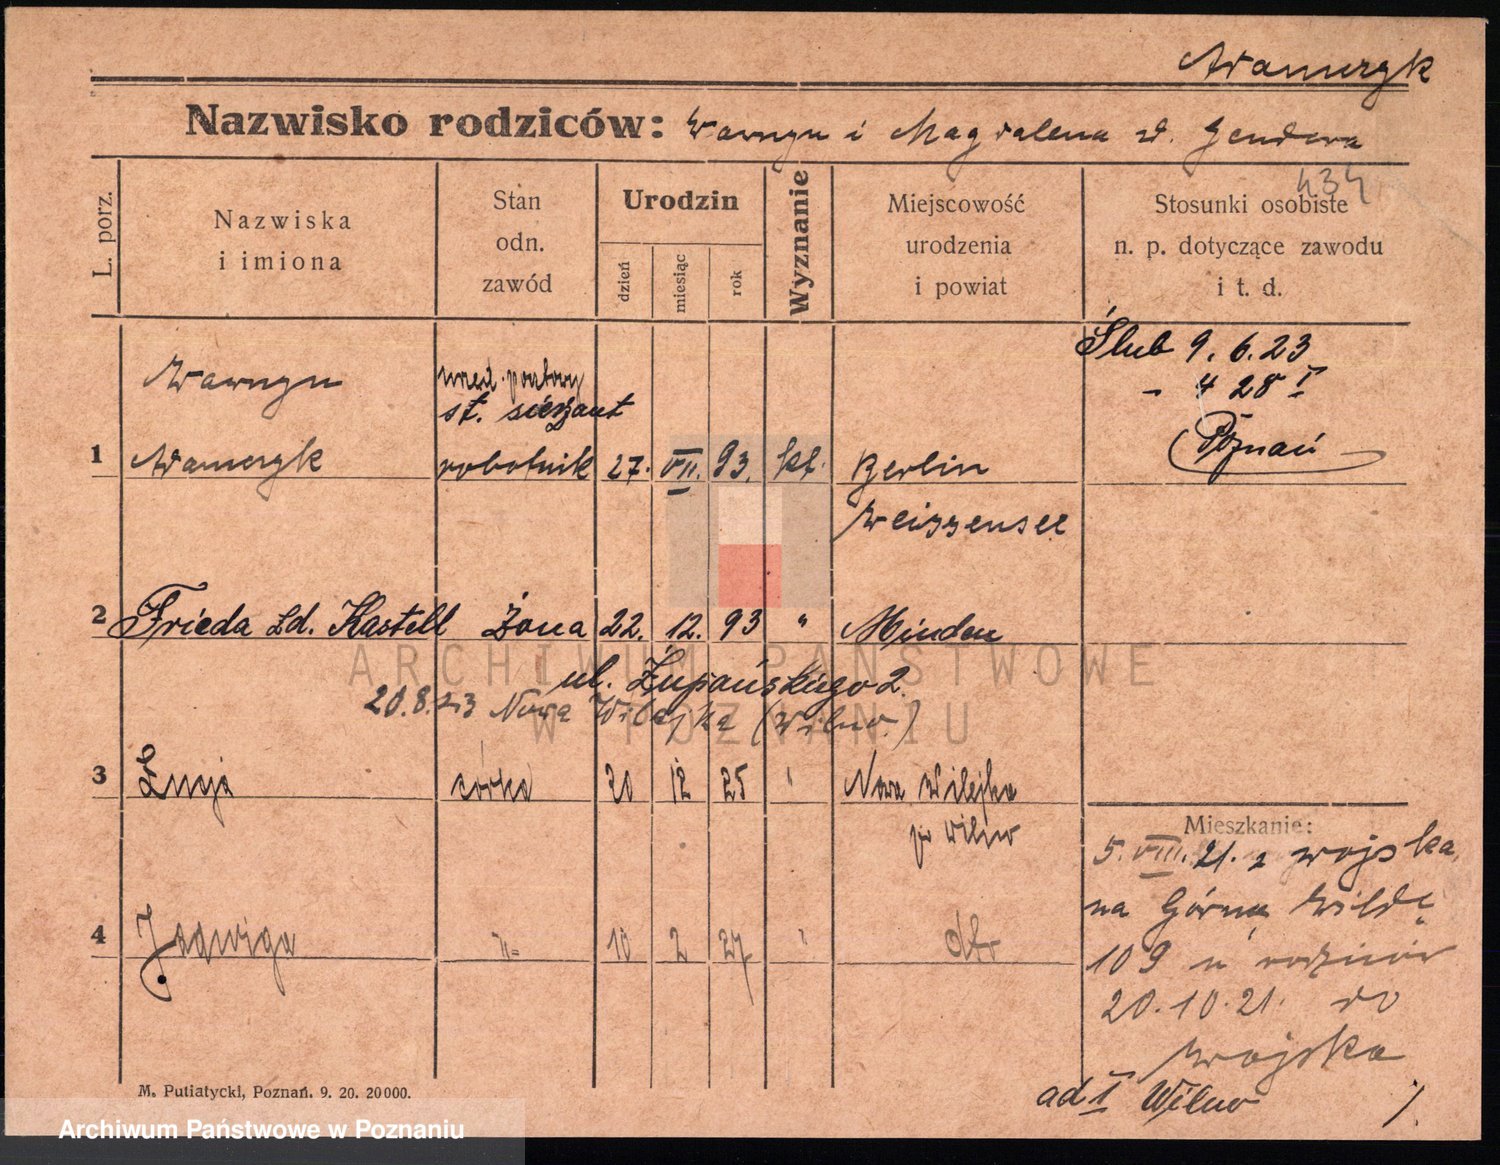 Adamczyk
Nazwisko rodziców: Wawrzyn i Magdalena zd. Gendera
434
L. porz.
Nazwiska
i imiona
Stan
odn.
zawód
Urodzin
dzień
miesiąc
rok
Wyznanie
Miejscowość
urodzenia
i powiat
Stosunki osobiste
n. p. dotyczące zawodu
i t. d.
Ślub 9. 6. 23
- 4 28 I
Poznań
Wawrzyn
pocztowy
st. sierżant
1 Adamczyk robotnik 27. VII. 93. kt. Berlin
Weissensee
2 Frieda zd. Kastell Żona 22. 12. 93 " Minden
ul. Żupańskiego 2.
20.8.23 Nowa Wilejka (Wilno)
3 Łucja córka 20 12 25 " Nowa Wilejka
Wilno
4 Jadwiga -"- 10 2 27 " dto
Mieszkanie:
5. VIII. 21. z wojska
na Górną Wildę
109 u rodziców
20.10.21. do
wojska
ad I Wilno /.
M. Putiatycki, Poznań. 9. 20. 20000.
ARCHIWUM PAŃSTWOWE
W POZNANIU
Archiwum Państwowe w Poznaniu